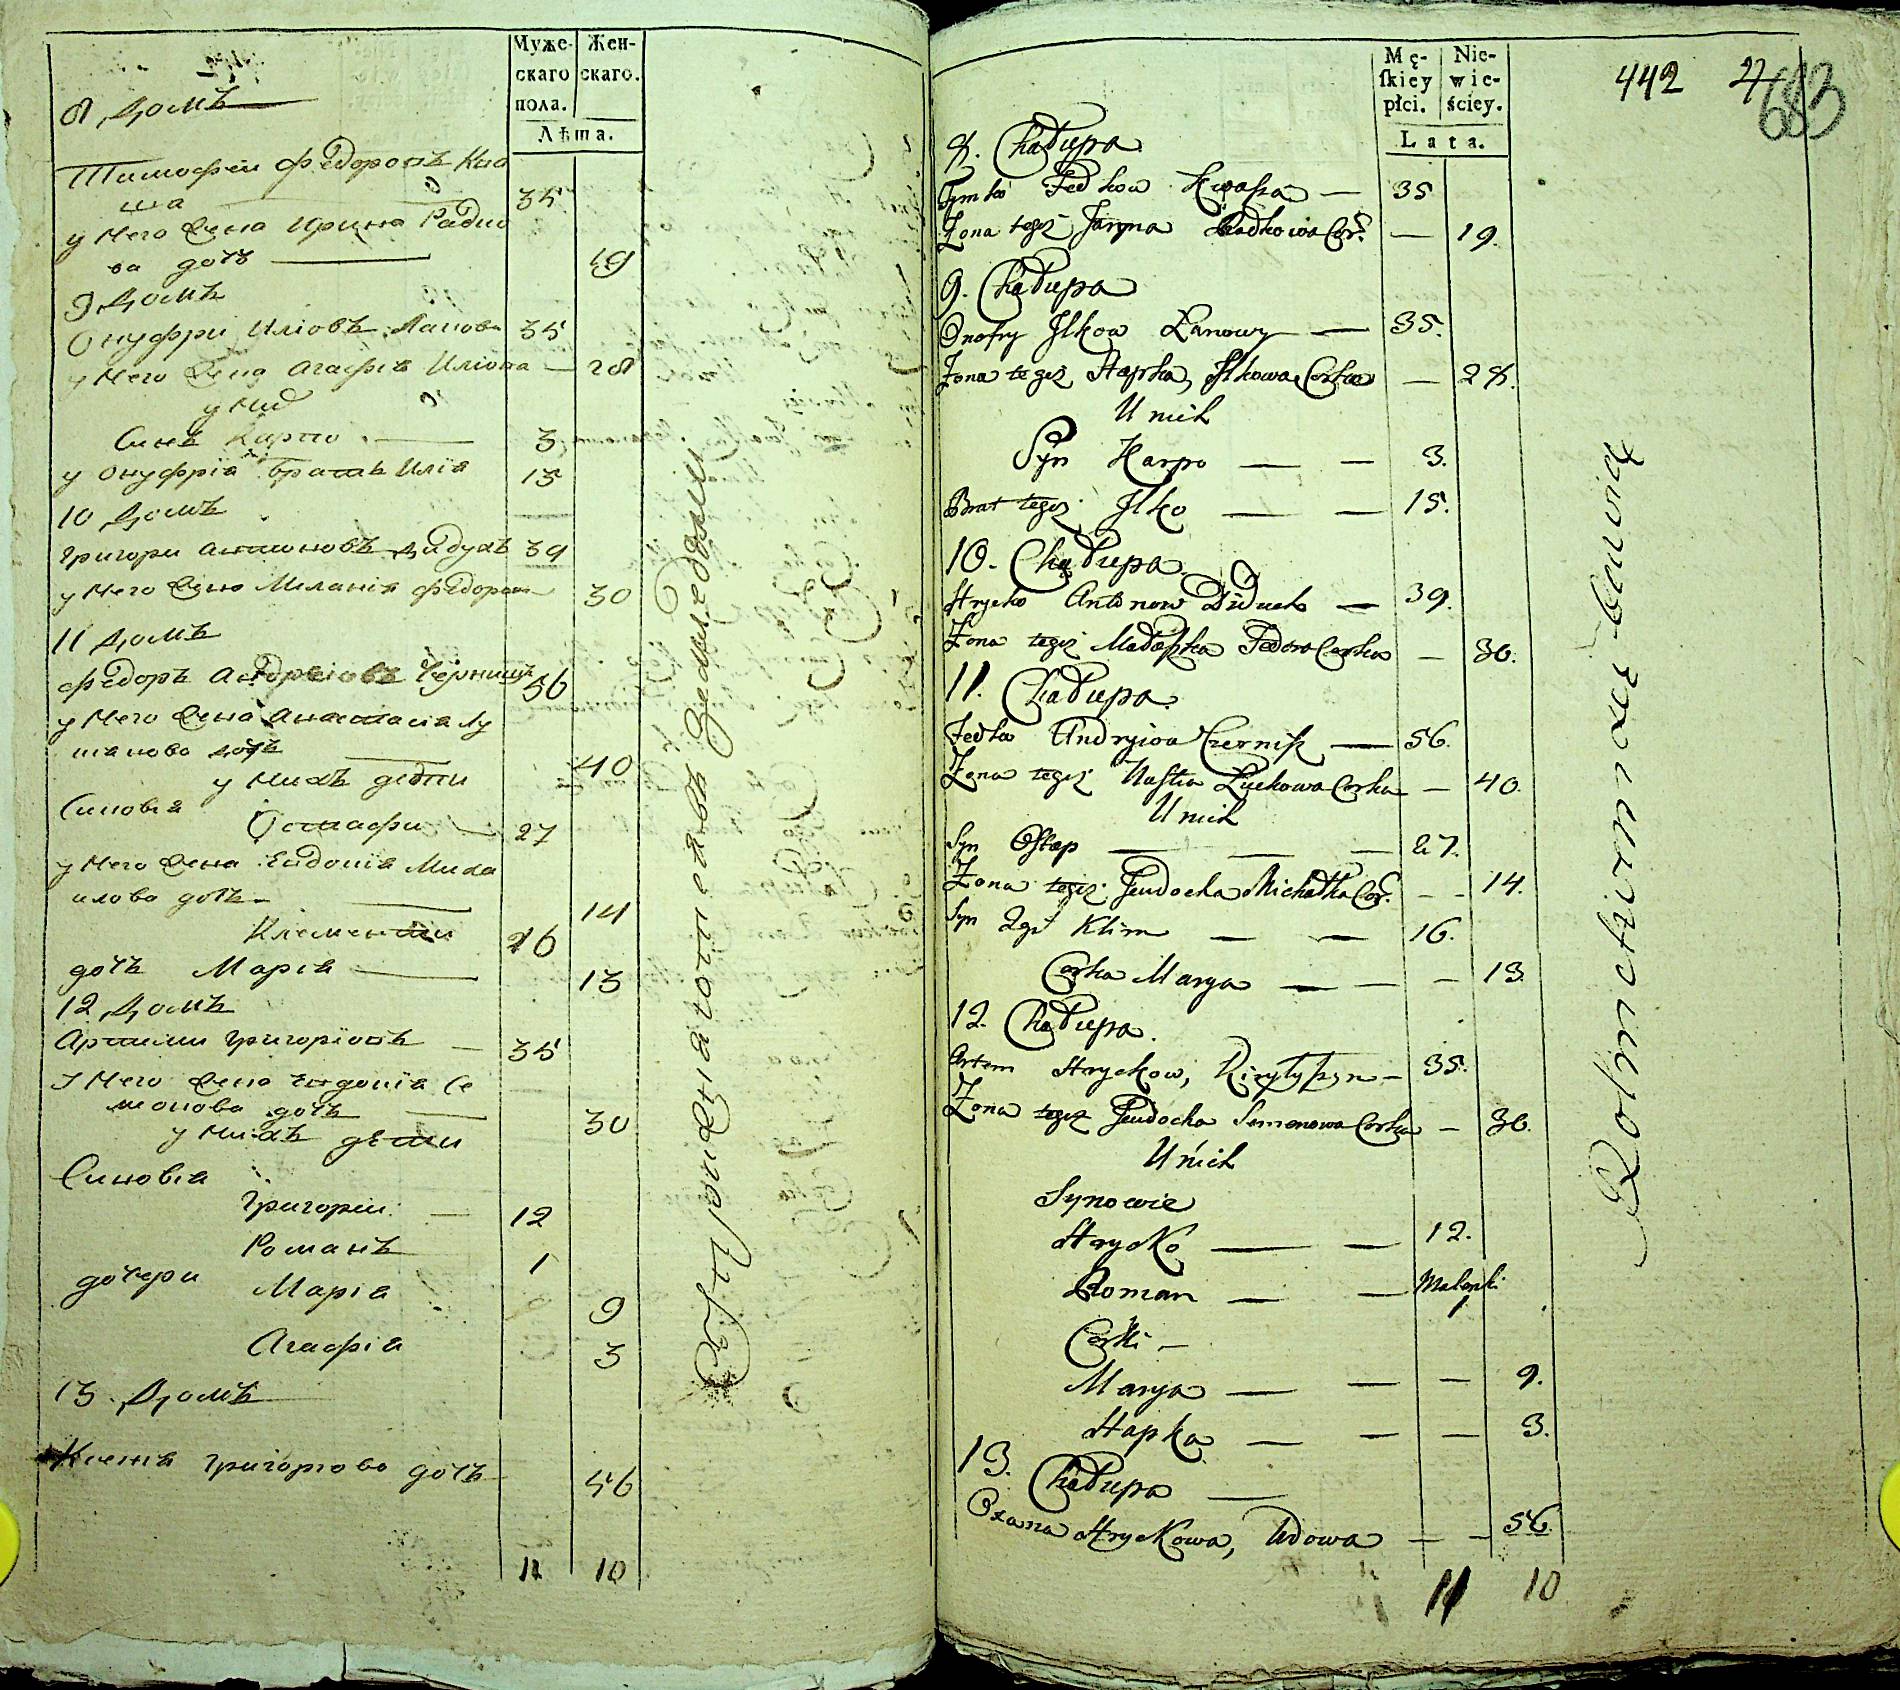 Муже-
скаго
пола.
Жен-
скаго.
Лѣта.
8 Домъ
Тимофей Федоровъ Ква
ша 35
у него жена Ирина Радко
ва дочь 19
9 Домъ
Онуфри Иліовъ Лановы 35
у него жена Агафія Иліова 28
у них
Синъ Карпо 3
у Онуфрія братъ Илія 15
10 Домъ
Григори Антоновъ Дидухъ 39
у него жена Меланія Федорова 30
11 Домъ
Федоръ Андреіовъ Чернишъ 56
у него жена Анастасія Лу
дочь 40
у нихъ дѣти
Синовія Остафи 27
у него жена Евдокія Миха
илова дочь 14
Клементи 16
дочь Марія 13
12 Домъ
Артими Григоріовъ 35
у него жена Евдокія Се
монова дочь 30
у нихъ дѣти
Синовія
Григорій 12
Романъ 1
дочери Марія 9
Агафія 3
13 Домъ
Григоріова дочь 56
11 10
Mę-
skiey
płci.
Nie-
wie-
ściey.
Lata.
442
683
8. Chałupa
Tymko Fedkow Kwasza — 35
Żona tegoż Jaryna Radkowa Cor: — 19.
9. Chałupa
Onofry Ilkow Łanowy — 35.
Żona tegoż Hapka, Ilkowa Corka — 28.
U nich
Syn Karpo — — 3.
Brat tegoż Ilko — — 15.
10. Chałupa
Hryćko Antonow Diduch — 39.
Żona tegoż Fedora Corka — 30.
11. Chałupa.
Fedko Andryiow Czernisz — 56.
Żona tegoż Nastia Łuckowa Corka — 40.
U nich
Syn Ostap — — — 27.
Żona tegoż Jewdocha Michałka Cor: — — 14.
Syn 2gi Klim — — 16.
Corka Marya — — — 13.
12. Chałupa.
Artem Hryckow, — 35.
Żona tegoż Jewdocha Semenowa Corka — 30.
U nich
Synowie
Hryćko — — 12.
Roman — — 1.
Corki —
Marya — — — 9.
Hapka — — — 3.
13. Chałupa —
Oxana Hryckowa, Wdowa — — 56.
11 10